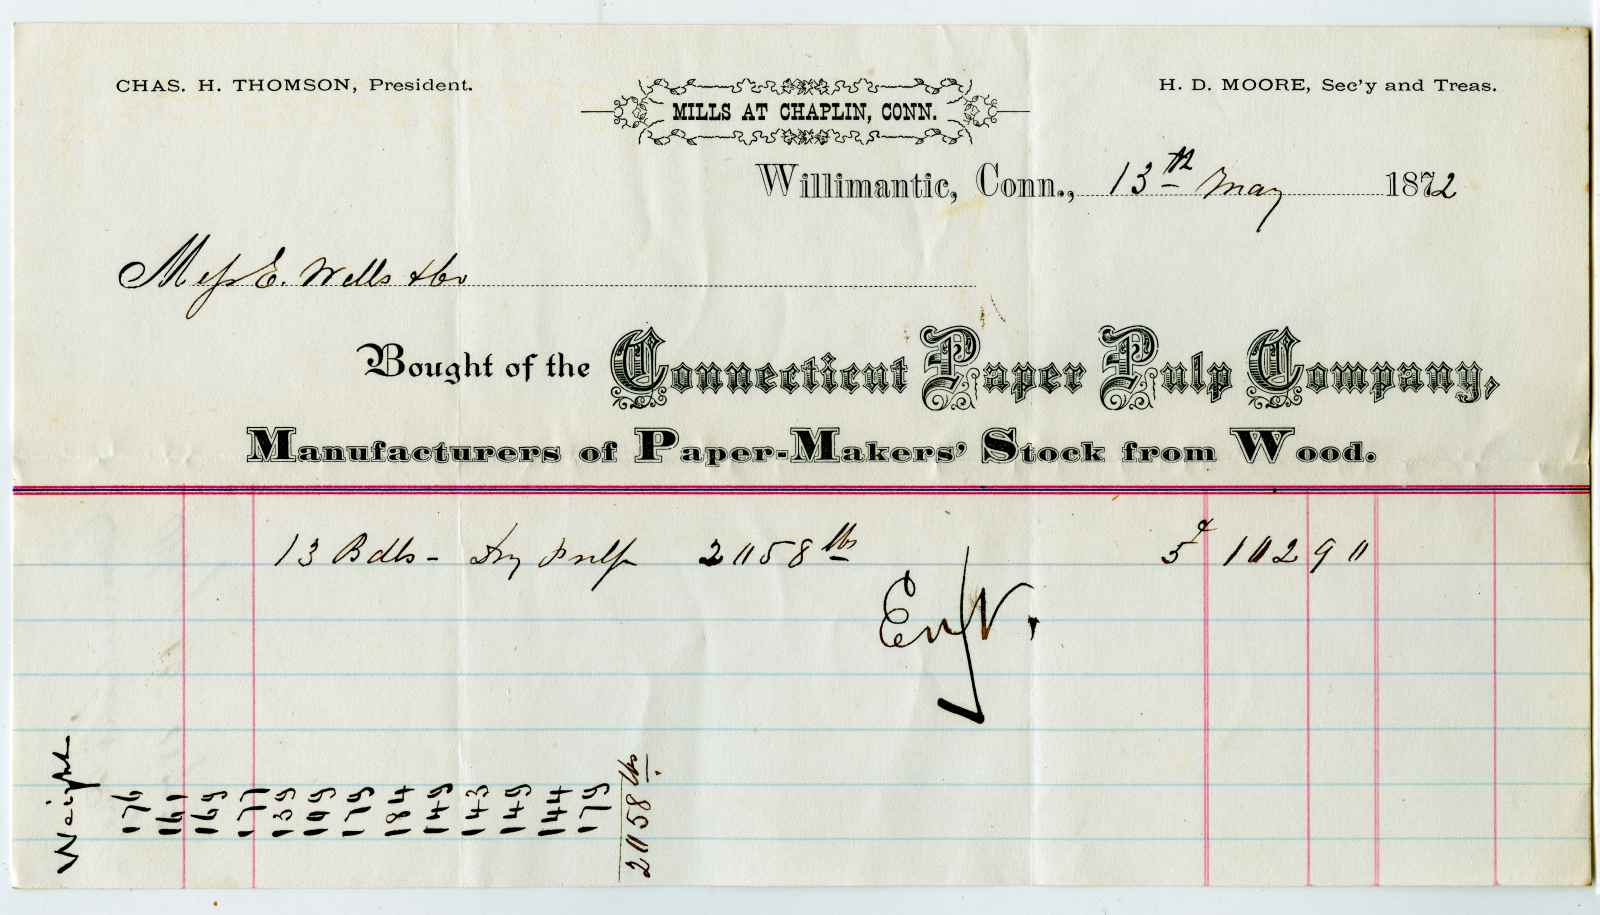 CHAS. H. THOMSON, President.
MILLS AT CHAPLIN, CONN.
H. D. MOORE, Sec'y and Treas.
Willimantic, Conn., 13th May 1872
Mess E. Wells & Co
Bought of the Connecticut Paper Pulp Company,
Manufacturers of Paper-Makers' Stock from Wood.
13 Bdls - Dry Pulp 2058 lbs 5¢ 102 90
Weight
176
161
169
177
139
109
179
184
149
143
149
144
179
2058 lbs.